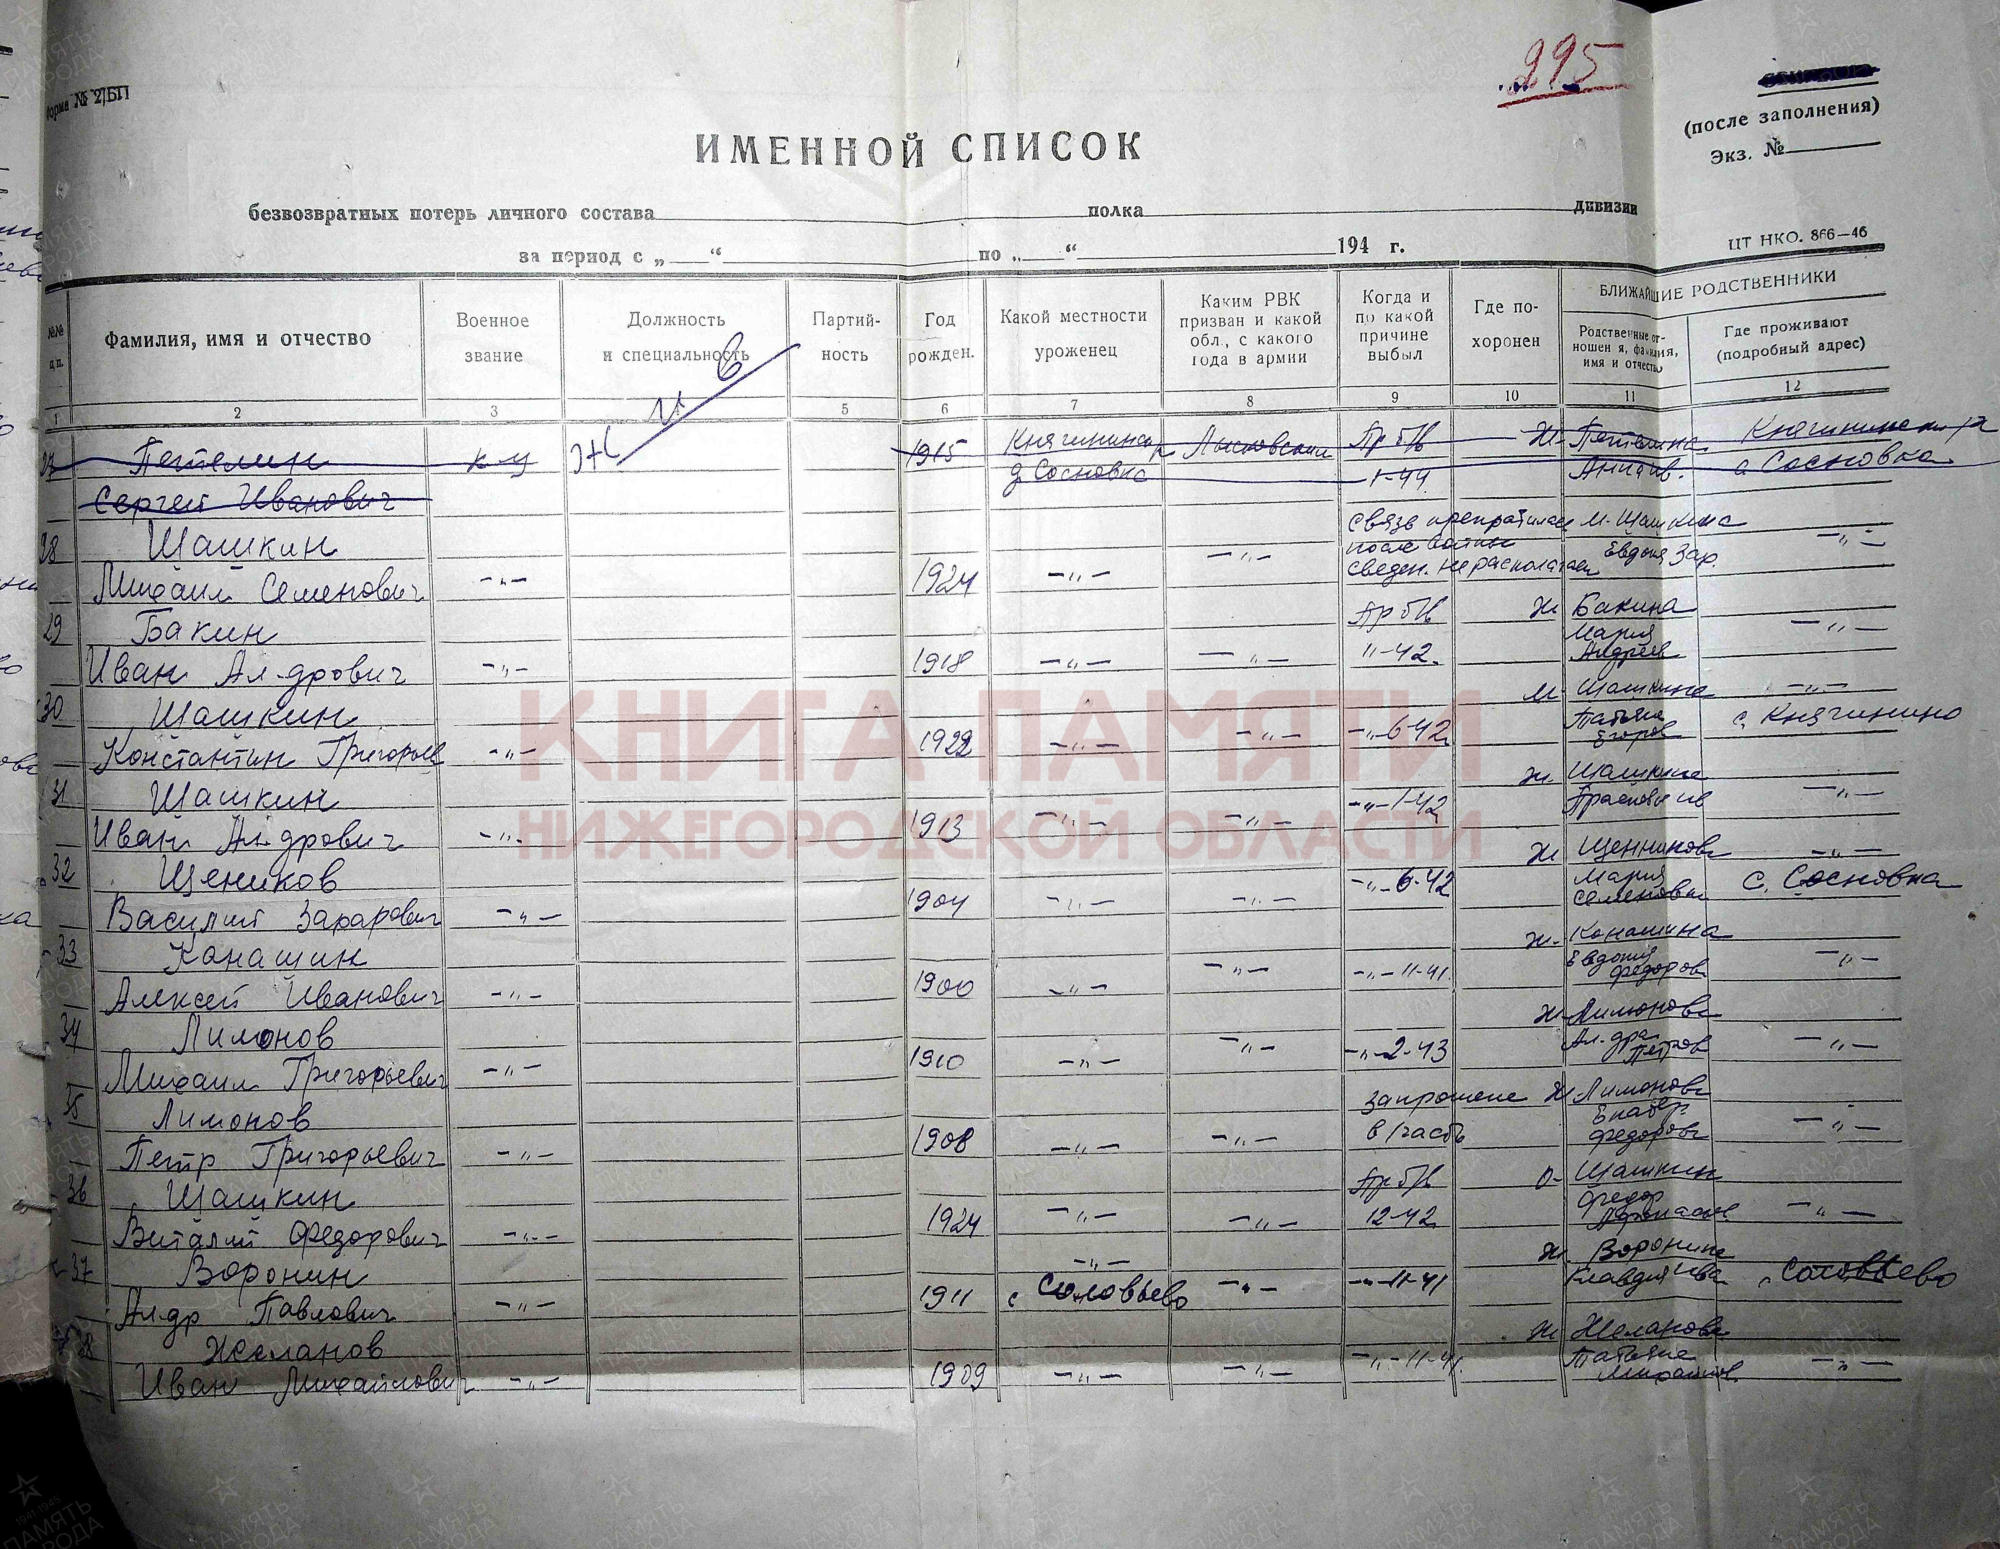 295
Форма № 2/БП
(после заполнения)
Экз. №
ИМЕННОЙ СПИСОК
безвозвратных потерь личного состава полка дивизии
за период с „ “ по „ “ 194 г.
ЦТ НКО. 866—46
№№ п.п.
Фамилия, имя и отчество
Военное звание
Должность и специальность
Партий- ность
Год рожден.
Какой местности уроженец
Каким РВК призван и какой обл., с какого года в армии
Когда и по какой причине выбыл
Где по- хоронен
БЛИЖАЙШИЕ РОДСТВЕННИКИ
Родственные от- ношен я, фамилия, имя и отчество
Где проживают (подробный адрес)
1 2 3 5 6 7 8 9 10 11 12
Жив
27 Петелин к-ц 1915 Княгининск р Лысковский Пр б/в Ж- Петелина Княгининский р
д Сосновка 1-44 Анна Ив. д Сосновка
Сергей Иванович
связь прекратилась М- Шашкина
28 Шашкин —„— после войны Евдокия Зах. —„—
Михаил Семенович —„— 1924 —„— сведен. не располагаем
29 Бакин Пр б/в Ж Бакина
Мария —„—
Иван Ал-дрович —„— 1918 —„— —„— 11-42. Андреев
30 Шашкин М- Шашкина —„—
Татьяна с. Княгинино
Константин Григорьев —„— 1922 —„— —„— —„—6-42 Егоров
31 Шашкин Ж- Шашкина
Прасковья Ив —„—
Иван Ал-дрович —„— 1913 —„— —„— —„—1-42
32 Щеников Ж Щенникова —„—
Мария с. Сосновка
Василий Захарович —„— 1904 —„— —„— —„—6-42 Семеновна
33 Канашин Ж- Канашина
Евдокия —„—
Алексей Иванович —„— 1900 —„— —„— —„—11-41. Федоров
34 Лимонов Ж- Лимонова
Ал-дра —„—
Михаил Григорьевич —„— 1910 —„— —„— —„—2-43 Петров
35 Лимонов запрошено Ж Лимонова
Екатер. —„—
Петр Григорьевич —„— 1908 —„— —„— в часть Федорова
36 Шашкин Пр б/в О- Шашкин
Федор
Виталий Федорович —„— 1924 —„— —„— 12-42 —„—
37 Воронин —„— Ж Воронина
Ал-др Павлович —„— 1911 с Соловьево —„— —„—11-41 Клавдия Ива с. Соловьево
38 Желанов Ж Желанова
Татьяна
Иван Михайлович —„— 1909 —„— —„— —„—11-41. Михайлов. —„—
КНИГА ПАМЯТИ
НИЖЕГОРОДСКОЙ ОБЛАСТИ